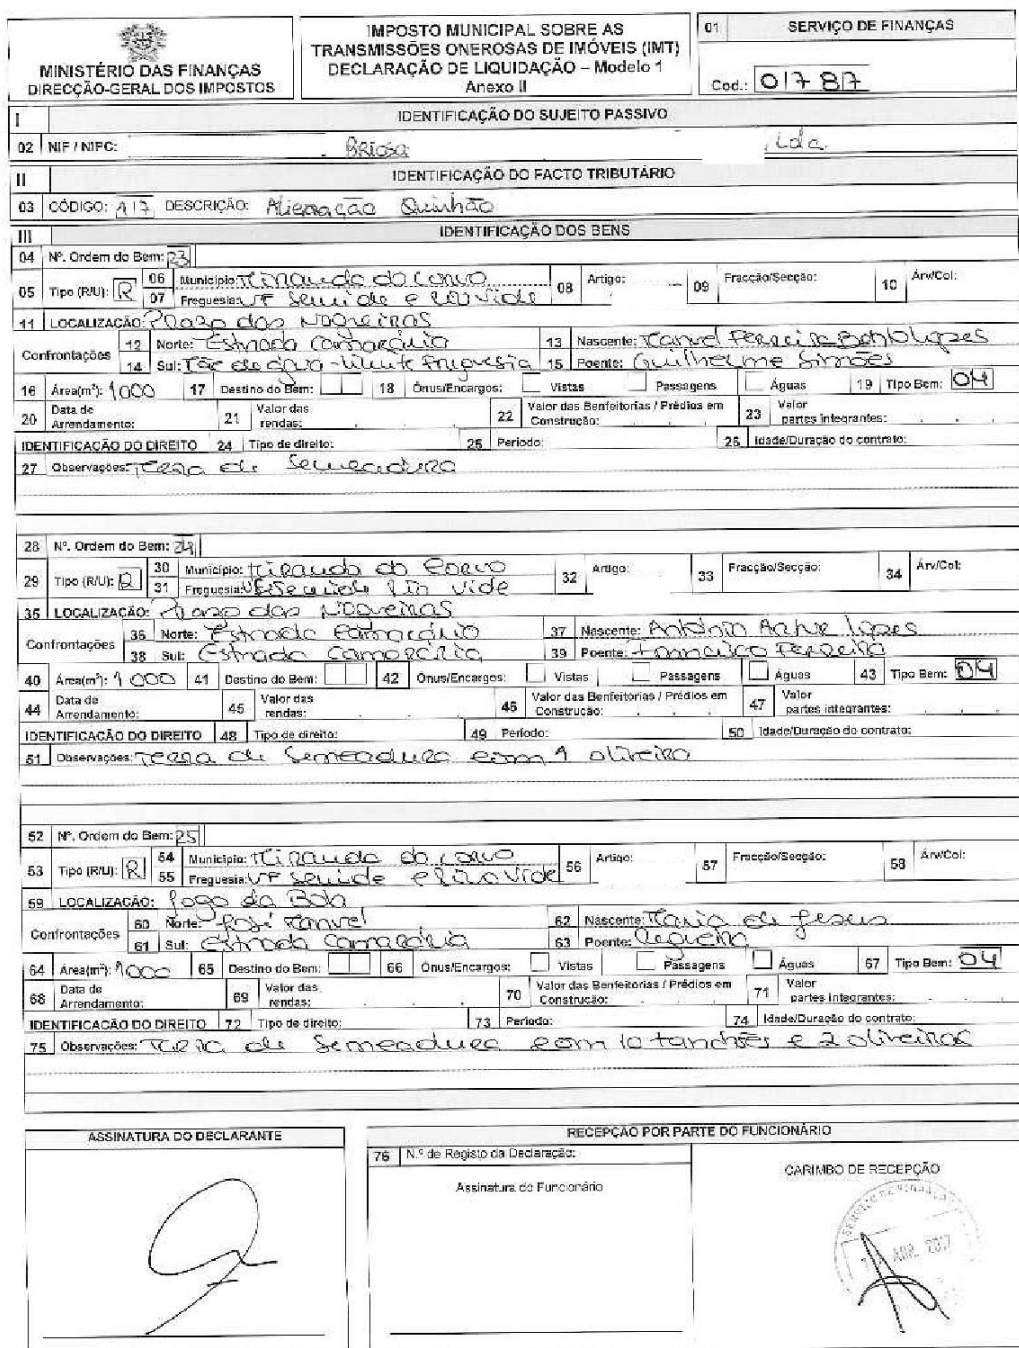 MINISTÉRIO DAS FINANÇAS
DIRECÇÃO-GERAL DOS IMPOSTOS
IMPOSTO MUNICIPAL SOBRE AS
TRANSMISSÕES ONEROSAS DE IMÓVEIS (IMT)
DECLARAÇÃO DE LIQUIDAÇÃO – Modelo 1
Anexo II
01 SERVIÇO DE FINANÇAS
Cod.: 01787
I IDENTIFICAÇÃO DO SUJEITO PASSIVO
02 NIF / NIPC: Briosa , Lda
II IDENTIFICAÇÃO DO FACTO TRIBUTÁRIO
03 CÓDIGO: 17 DESCRIÇÃO: Alienação Quinhão
III IDENTIFICAÇÃO DOS BENS
04 Nº. Ordem do Bem: 23
05 Tipo (R/U): R 06 Município: Miranda do Corvo 08 Artigo: 09 Fracção/Secção: 10 Árv/Col:
07 Freguesia: UF Semide e Rio Vide
11 LOCALIZAÇÃO: Prazo das Nogueiras
Confrontações 12 Norte: Estrada Camarária 13 Nascente: Manuel Ferreira Lopes
14 Sul: 15 Poente: Guilherme Simões
16 Área(m²): 1000 17 Destino do Bem: 18 Ónus/Encargos: Vistas Passagens Águas 19 Tipo Bem: 04
20 Data de Arrendamento: 21 Valor das rendas: 22 Valor das Benfeitorias / Prédios em Construção: 23 Valor partes integrantes:
IDENTIFICAÇÃO DO DIREITO 24 Tipo de direito: 25 Período: 26 Idade/Duração do contrato:
27 Observações: Terra de Semeadura
28 Nº. Ordem do Bem: 24
29 Tipo (R/U): R 30 Município: Miranda do Corvo 32 Artigo: 33 Fracção/Secção: 34 Árv/Col:
31 Freguesia: UF Semide Rio Vide
35 LOCALIZAÇÃO: Prazo das Nogueiras
Confrontações 36 Norte: Estrada Camarária 37 Nascente: António Lopes
38 Sul: Estrada Camarária 39 Poente: Francisco Ferreira
40 Área(m²): 1000 41 Destino do Bem: 42 Ónus/Encargos: Vistas Passagens Águas 43 Tipo Bem: 04
44 Data de Arrendamento: 45 Valor das rendas: 46 Valor das Benfeitorias / Prédios em Construção: 47 Valor partes integrantes:
IDENTIFICAÇÃO DO DIREITO 48 Tipo de direito: 49 Período: 50 Idade/Duração do contrato:
51 Observações: Terra de Semeadura com 1 oliveira
52 Nº. Ordem do Bem: 25
53 Tipo (R/U): R 54 Município: Miranda do Corvo 56 Artigo: 57 Fracção/Secção: 58 Árv/Col:
55 Freguesia: UF Semide e Rio Vide
59 LOCALIZAÇÃO: Jogo da Bola
Confrontações 60 Norte: José Manuel 62 Nascente: Maria de Jesus
61 Sul: Estrada Camarária 63 Poente: Regueira
64 Área(m²): 1000 65 Destino do Bem: 66 Ónus/Encargos: Vistas Passagens Águas 67 Tipo Bem: 04
68 Data de Arrendamento: 69 Valor das rendas: 70 Valor das Benfeitorias / Prédios em Construção: 71 Valor partes integrantes:
IDENTIFICAÇÃO DO DIREITO 72 Tipo de direito: 73 Período: 74 Idade/Duração do contrato:
75 Observações: Terra de Semeadura com 10 tanchões e 2 oliveiras
ASSINATURA DO DECLARANTE
RECEPÇÃO POR PARTE DO FUNCIONÁRIO
76 N.º de Registo da Declaração:
Assinatura do Funcionário
CARIMBO DE RECEPÇÃO
ABR. 2017